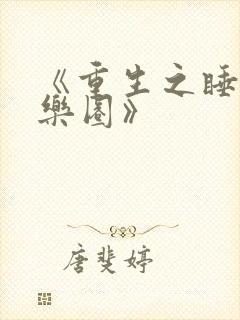 《重生之睡
樂園》
唐斐婷